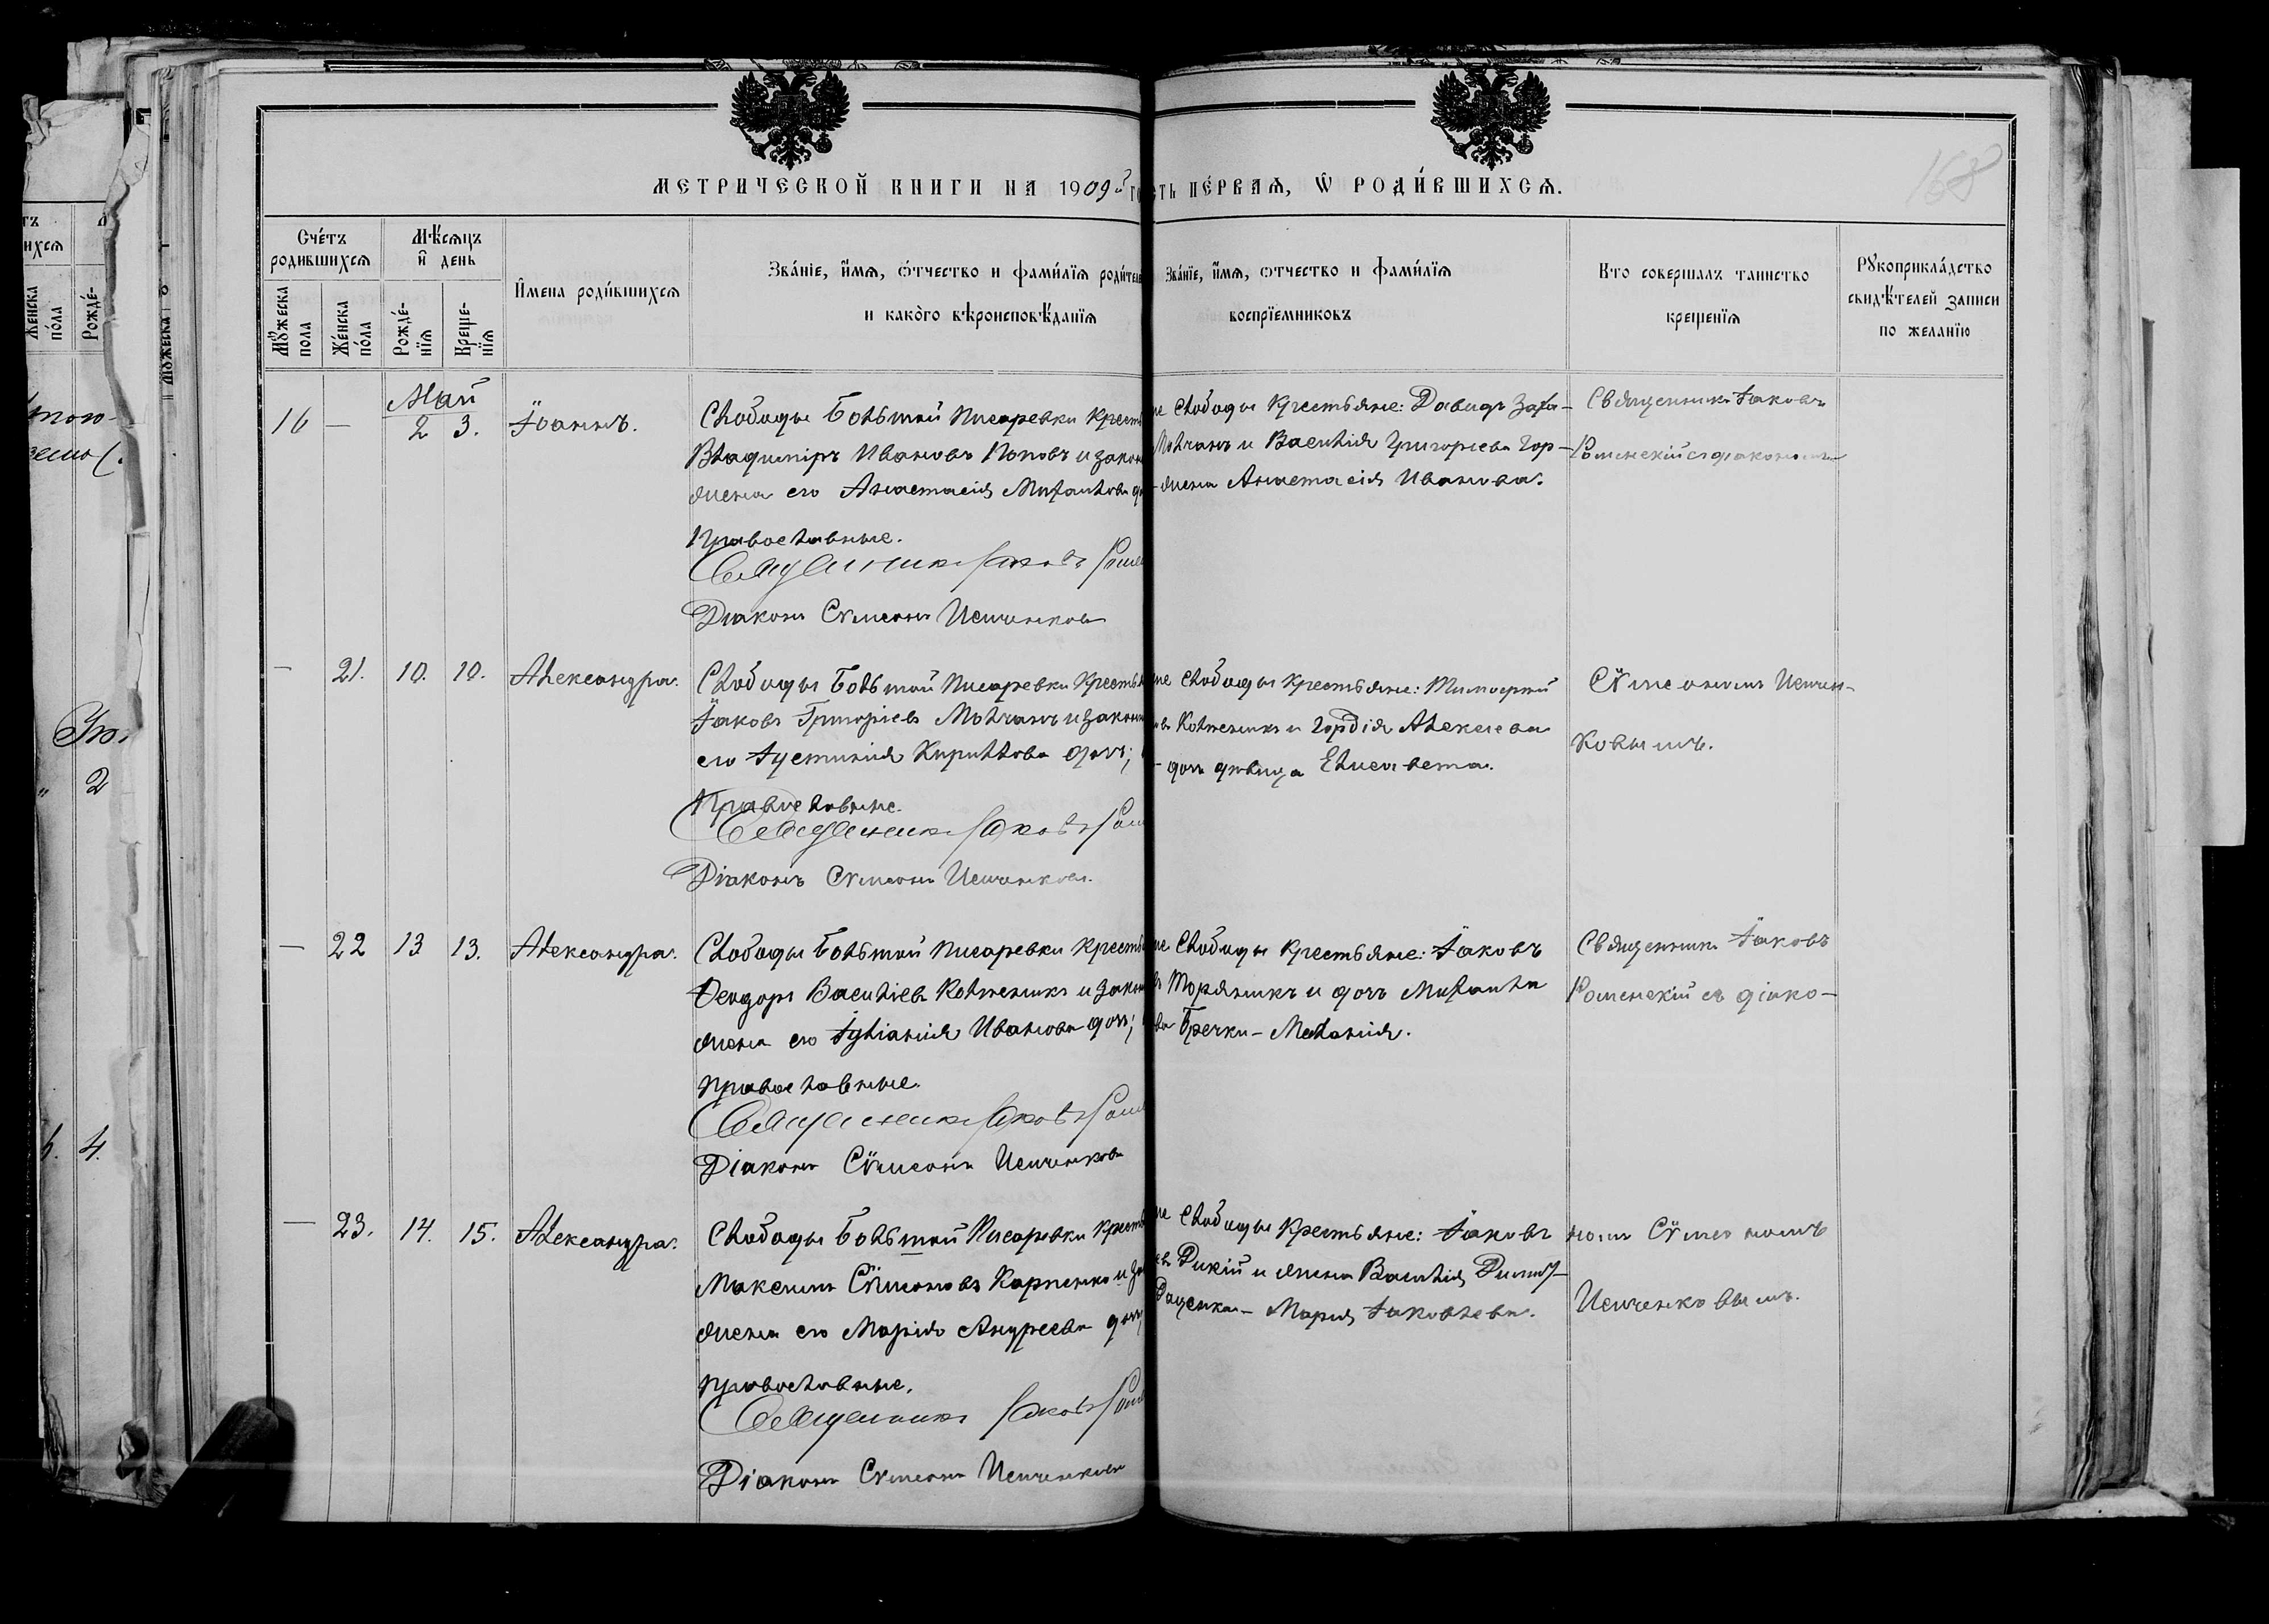 МЕТРИЧЕСКОЙ КНИГИ НА 1909й
СТЬ ПЕ́РВАЯ, Ѡ РОДИ́ВШИХСЯ.
168
Сче́тъ родившихся
Мѣ́сяцъ и҆ день
Мꙋ́жеска пола
Же́нска по́ла
Рожде́-нїя
Креще-нїя
И҆мена роди́вшихся
Зва́нїе, и҆́мя, ѻ҆́тчество и фами́лїя
и како́го вѣроисповѣ́данїя
Зва́нїе, и҆́мя, ѻтчество и фами́лїя
воспрїемниковъ
Кто совершалъ таинство
крещенїя
Рꙋкоприкла́дство
свидѣ́телей записи
по желанїю
Май
16 — 2 3. Іоаннъ.
Слободы Большой Писаревки
Владиміръ Ивановъ Поповъ и
жена его Анастасія Михайлова
Православные.
Священникъ Іаковъ
Діаконъ Сѵмеонъ Исиченковъ
Слободы крестьяне: Давидъ Заха-
Молчанъ и Василія Григорьева Гор-
жена Анастасія Иванова.
Священникъ Іаковъ
Роменскій съ діакономъ
— 21. 10. 10. Александра.
Слободы Большой Писаревки
Іаковъ Григоріевъ Молчанъ и
его Іустинія Кириллова доч;
Православные.
Священникъ Іаковъ
Діаконъ Сѵмеонъ Исиченковъ.
Слободы крестьяне: Тимоѳей
Колженикъ и Гордія Алексіева
доч дѣвица Елисавета.
Сѵмеономъ Исичен-
ковымъ.
— 22 13 13. Александра.
Слободы Большой Писаревки
Ѳеодоръ Васильевъ Колженикъ и
жена его Іуліанія Иванова доч;
Православные.
Священникъ Іаковъ
Діаконъ Сѵмеонъ Исиченковъ
Слободы крестьяне: Іаковъ
Торяникъ и доч Михаила
Гречки – Меланія.
Священникъ Іаковъ
Роменскій съ діако-
— 23. 14. 15. Александра.
Слободы Большой Писаревки
Максимъ Сѵмеоновъ Карпенко и
жена его Марія Андреева
Православные.
Священникъ Іаковъ
Діаконъ Сѵмеонъ Исиченковъ
Слободы крестьяне: Іаковъ
Дикій и жена Василія
Даценка – Марія Іаковлева.
номъ Сѵмеономъ
Исиченковымъ.